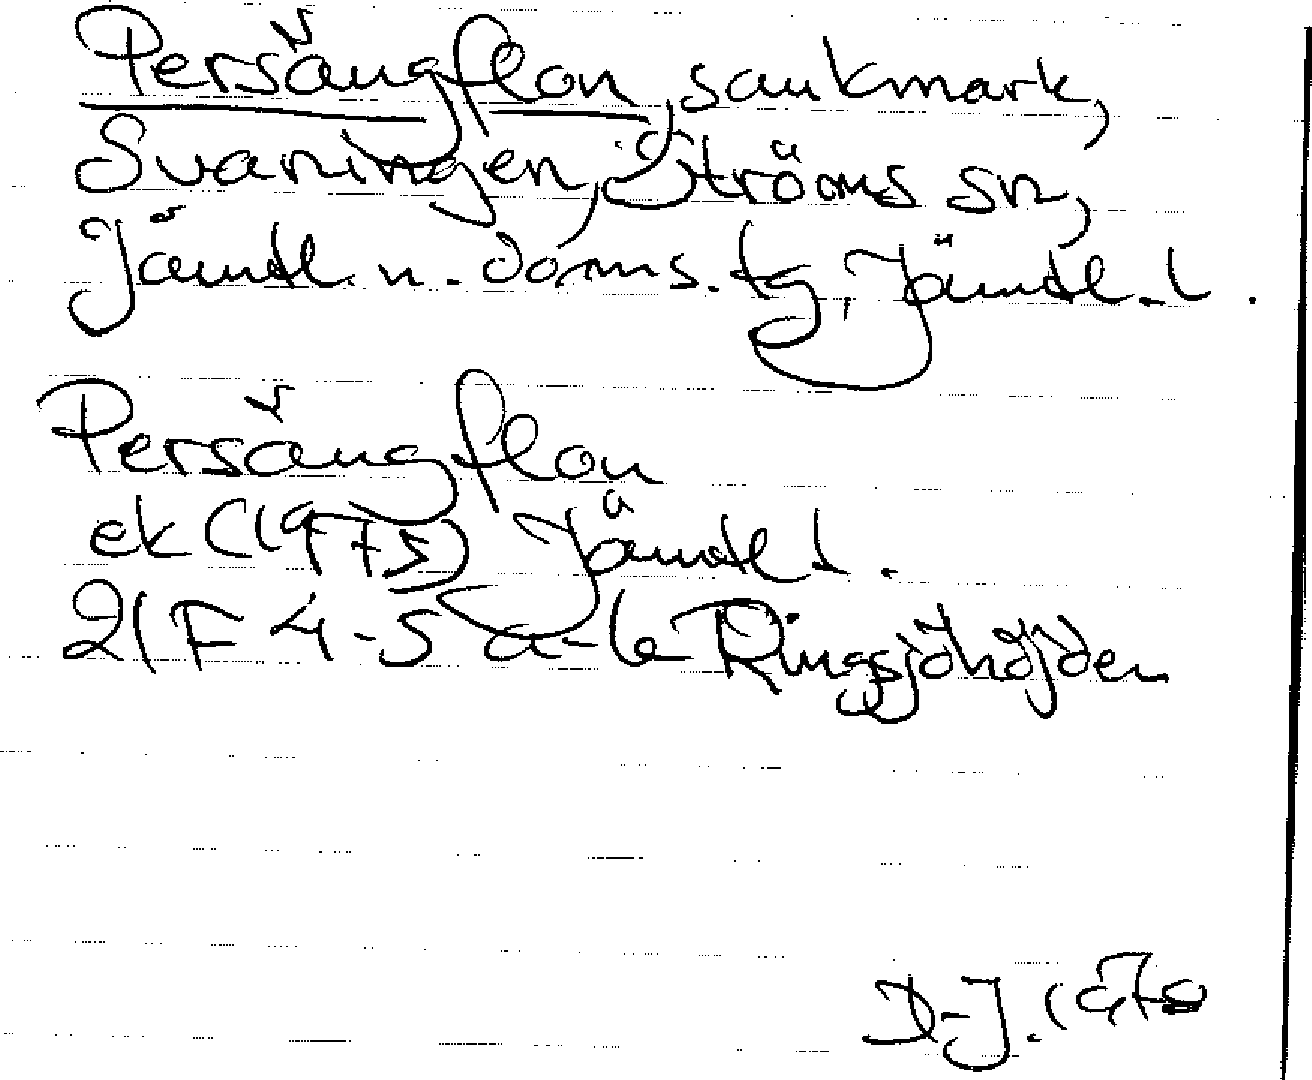 Persängflon, sankmark,
Svaningen, Ströms sn,
Jämtl. n. doms. tg, Jämtl. l.
Persängflon
ek (1975) Jämtl l.
21F 4-5 a-b Ringsjöhöjden
D-J.